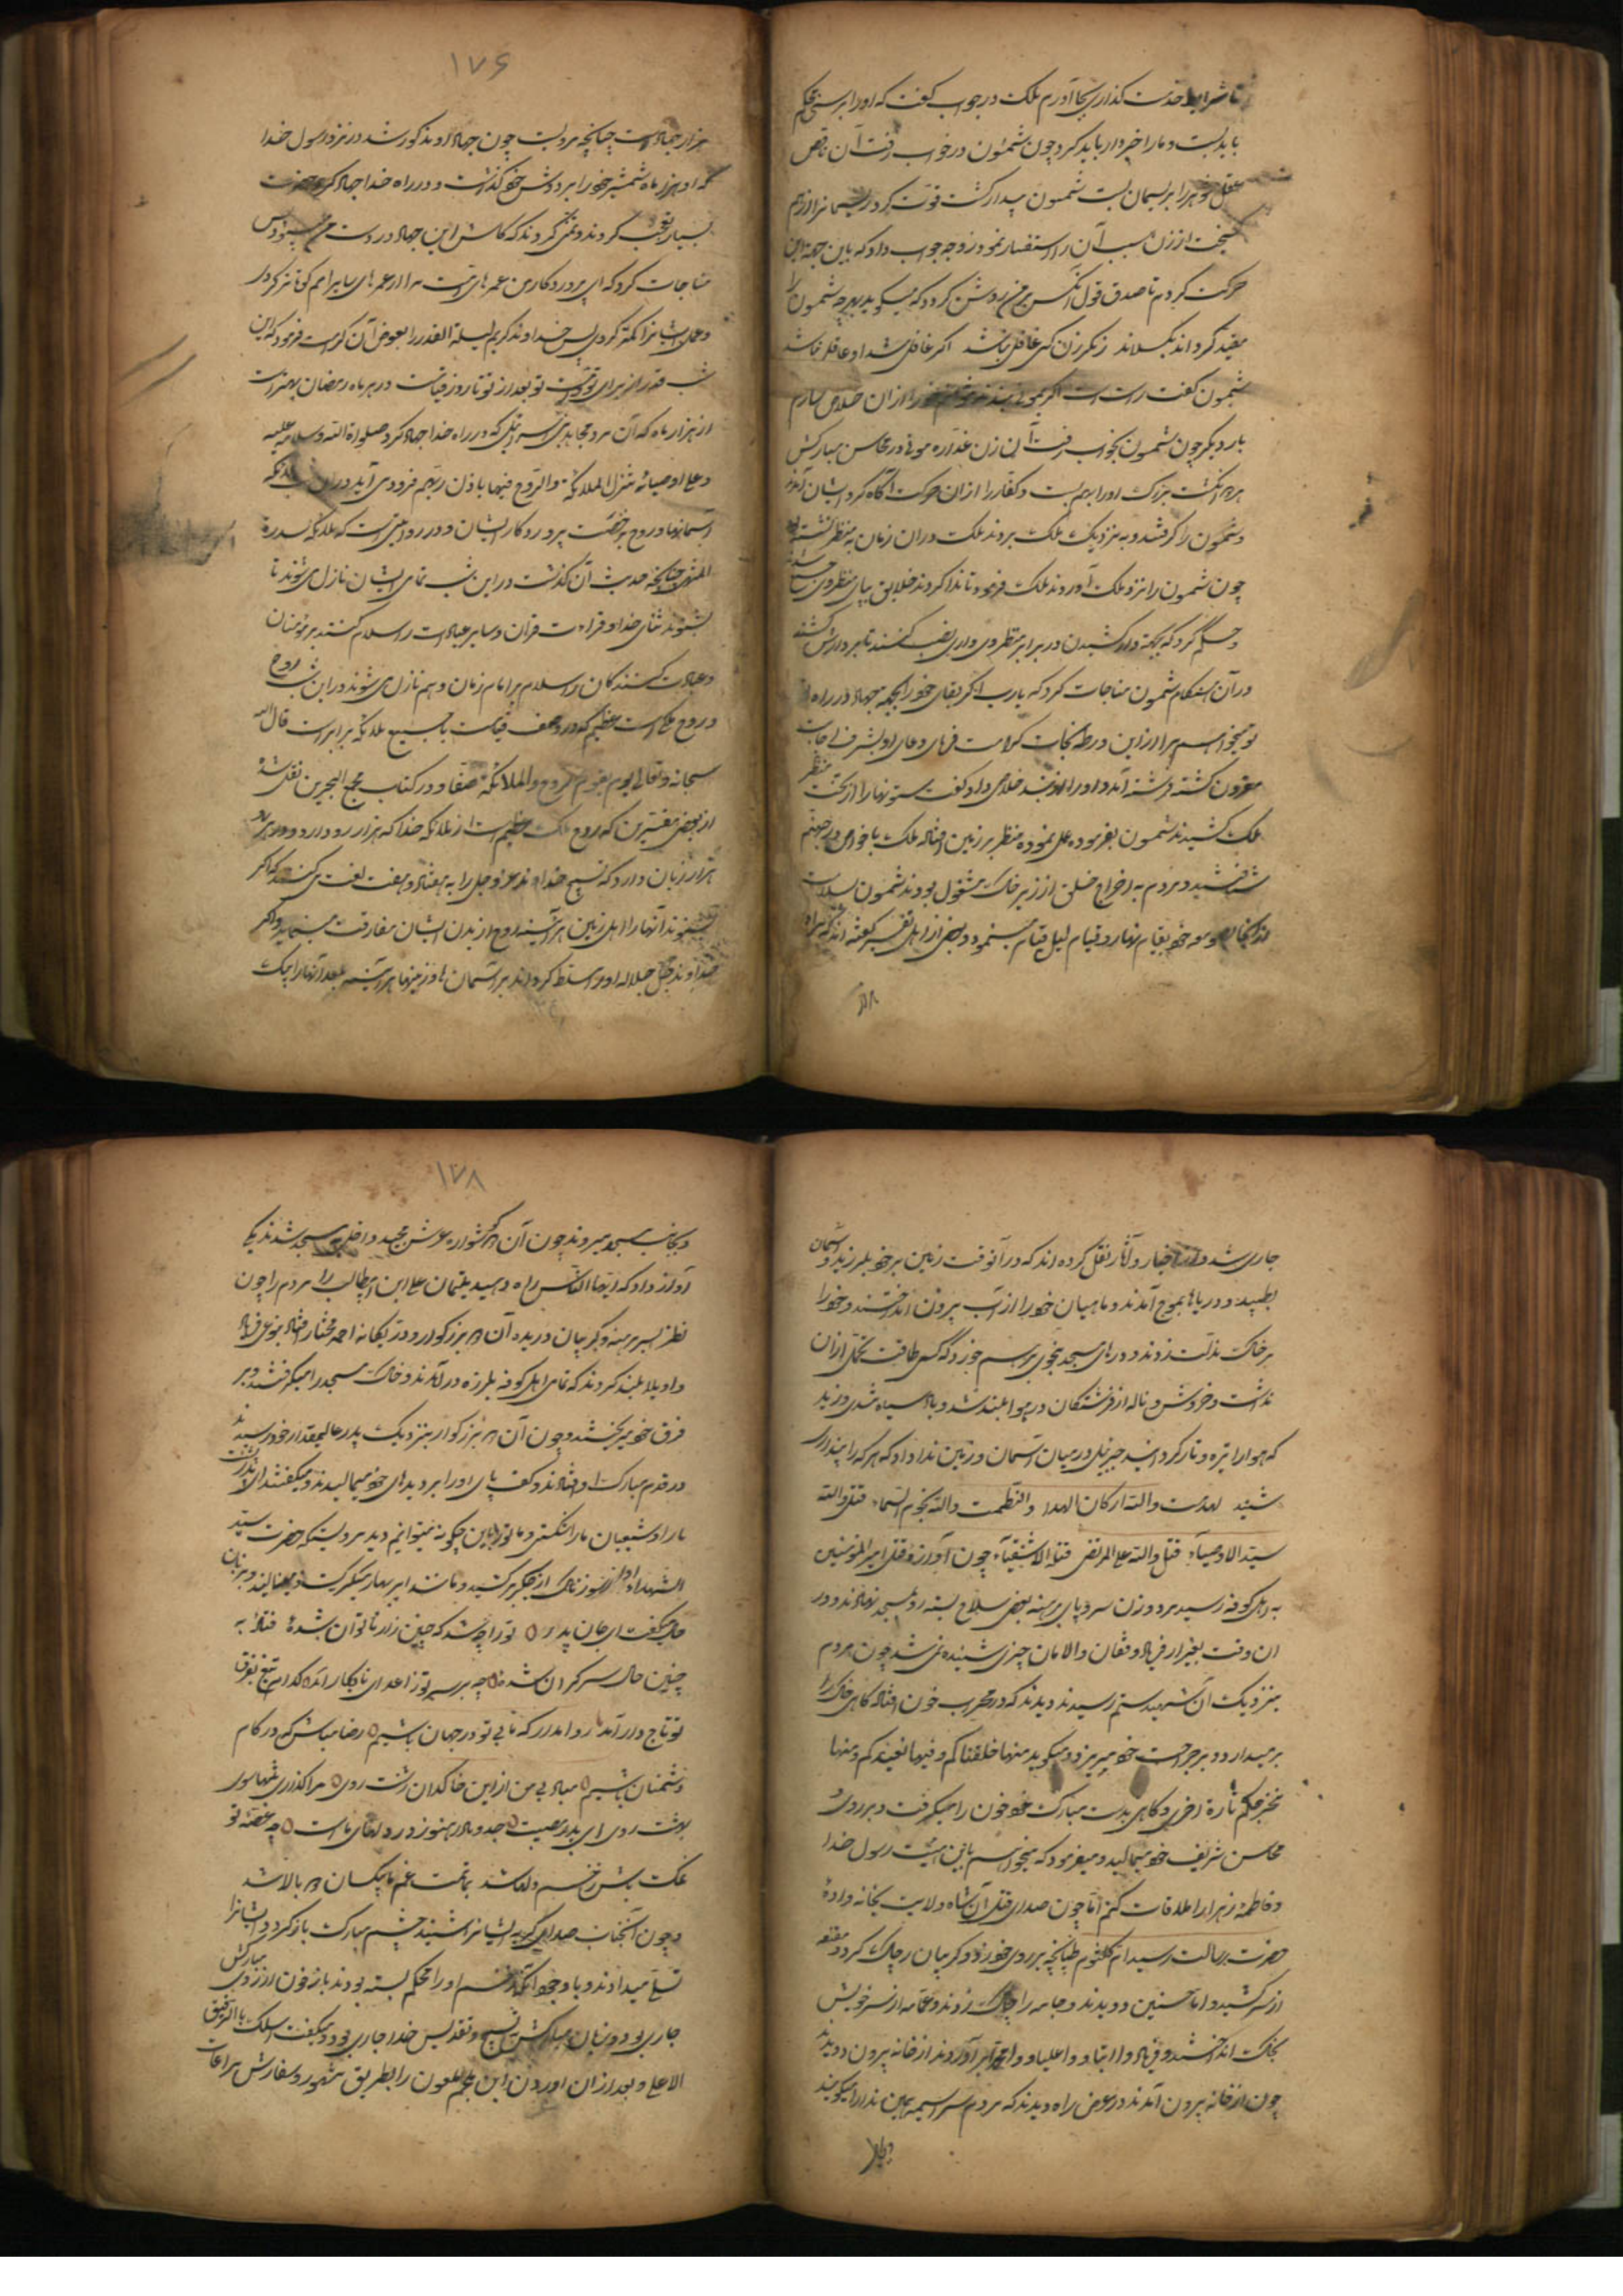 تا شرایط خدمت گذاری بجا آورم ملک در جواب گفت که او را بریسمانی محکم
باید بست و ما را خبردار باید کرد چون شمسون در خواب رفت آن ناقص
عقل شوهر را بریسمان بست شمسون بیدار گشت قوت کرد ریسمانرا از هم
از زن سبب آن را استفسار نمود زوجه جواب داد که باین جهة این
حرکت کردم تا صدق قول آنکس بر من روشن گردد که میگوید بهرچه شمسون را
مقید گرداند بگسلاند ز مکر زن کسی غافل نباشد اگر غافل شد او عاقل نباشد
شمسون گفت راست است اگر بموی بندند نتوانم خود را از آن خلاص سازم
بار دیگر چون شمسون بخواب رفت آن زن غداره موئی از محاسن مبارکش
هر دو انگشت بزرگ او را بهم بست و کفار را از آن حرکت آگاه کرد ایشان آمدند
و شمسون را گرفتند و به نزدیک ملک بردند ملک در آن زمان به منظر نشسته بود
چون شمسون را نزد ملک آوردند ملک فرمود تا ندا کردند خلایق بپای منظر وی
و حکم کرد که بجهة دار کشیدن در برابر منظر وی داری نصب کنند تا بر دارش کشند
در آن هنگام شمسون مناجات کرد که یا رب اگر بقای خود را بجهة جهاد در راه
تو میخواهم مرا از این ورطه نجات کرامت فرمای دعای او بشرف اجابت
مقرون گشته فرشته آمد و او را از بند خلاصی داد و گفت ستونها را از تحت منظر
ملک کشید شمسون بفرموده عمل نموده منظر بر زمین افتاد ملک با خواص در جهنم
شتافتند و مردم به اخراج خلق از زیر خاک مشغول بودند شمسون بسلامت
صومعه خود بقیام نهار و قیام لیل قیام مینمود و بعضی از اهل تفسیر گفته اند که مراد
۱۷۶
هزار جهاد است چنانچه مرویست چون جهاد او مذکور شد در نزد رسول خدا
که او هزار ماه شمشیر خود را بر دوش خود گذاشت و در راه خدا جهاد کرد حضرت
بسیار تعجب کردند و تمنی کردند که کاش این جهاد در امت من میبود پس
مناجات کرد که ای پروردگار من عمرهای امت مرا از عمرهای سایر امم کوتاه تر کردی
و عمل ایشانرا کمتر کردی پس خداوند کریم لیلة القدر را بعوض آن کرامت فرمود که این
شب قدر از برای تو و امت تو بعد از تو تا روز قیامت در هر ماه رمضان بهتر است
از هزار ماه که آن مرد مجاهد بنی اسرائیلی که در راه خدا جهاد کرد صلواة الله و سلامه علیه
و علی اوصیائه تنزل الملائکة و الروح فیها باذن ربهم فرود می آید در این شب ملائکه
آسمانها و روح به رخصت پروردگار ایشان و در روایتی است که ملائکه سدرة
المنتهی چنانچه حدیث آن گذشت در این شب تمامی ایشان نازل می شوند تا
بشنوند ثنای خدا و قراءت قران و سایر عبادات را و سلام کنند بر مؤمنان
و عبادت کنندگان و سلام بر امام زمان و هم نازل می شود در این شب روح
و روح ملکی است عظیم که در وصف قیامت با جمیع ملائکه برابر است قال الله
سبحانه و تعالی یوم یقوم الروح و الملائکة صفا و در کتاب مجمع البحرین نقل شده
از بعضی مفسرین که روح ملک عظیم است از ملائکه خدا که هزار رو دارد و در هر رو
هزار زبان دارد که تسبیح خداوند عز و جل را به هفتاد و هفت لغت می کند که اگر
بشنوند آنها را اهل زمین هر آینه روح از بدن ایشان مفارقت مینماید و اگر
خداوند جل جلاله او را مسلط گرداند بر آسمان ها و زمینها هر آینه بلعد آنها را بیک
جاری شد و از اخبار و آثار نقل کرده اند که در آنوقت زمین بر خود بلرزید و آسمان
بطپید و دریاها بموج آمدند و ماهیان خود را از آب بیرون انداختند و خود را
بر خاک مذلت زدند و درهای مسجد بنحوی بر هم خورد که کس طاقت تحمل آن
نداشت و خروش و ناله از فرشتگان در هوا بلند شد و باد سیاه شدید وزید
که هوا را تیره و تار گردانید جبرئیل در میان آسمان و زمین ندا داد که هر که را بیداری
شنید لهدمت والله ارکان الهدا و انطمست والله نجوم السماء قتل والله
سید الاوصیآء قتل والله علی المرتضی قتله الاشقیآء چون آوازه قتل امیر المؤمنین
به اهل کوفه رسید مرد و زن سر و پای برهنه بعضی سلاح بسته رو بمسجد نهادند و در
آن وقت بغیر از فریاد و فغان و الامان چیزی شنیده نمی شد چون مردم
بنزدیک آن شهید ستم رسیدند دیدند که در محراب خون افتاده گاهی خاک را
بر میدارد و بر جراحت خود میریزد و میگوید منها خلقناکم و فیها نعیدکم و منها
نخرجکم تارة اخری و گاهی بدست مبارک خود خون را میگرفت و بر روی
محاسن شریف خود میمالید و میفرمود که میخواهم باین هیئت رسول خدا
و فاطمه زهرا را ملاقات کنم اما چون صدای قتل آن شاه ولایت بخانواده
حضرت رسالت رسید ام کلثوم طپانچه بر روی خود زد و گریبان چاک کرد و مقنعه
از سر کشید و اما حسنین دویدند و جامه را چاک زدند و عمامه از سر خویش
بخاک انداختند و فریاد وا ابتاه و وا علیاه و وا محمداه بر آوردند از خانه بیرون دویدند
چون از خانه بیرون آمدند در عرض راه دیدند که مردم سراسیمه همین ندا را میگویند
۱۷۸
و بجانب مسجد میروند چون آن دو گوشواره عرش مجید داخل مسجد شدند یکی
آواز داد که ایها الناس راه دهید یتیمان علی ابن ابیطالب را مردم را چون
نظر بسر برهنه و گریبان دریده آن دو بزرگوار و دو ریحانه احمد مختار افتاد بنوعی فریاد
واویلا بلند کردند که تمامی اهل کوفه بلرزه در آمدند و خاک مسجد را میگرفتند و بر
فرق خود میریختند و چون آن دو بزرگوار بنزدیک پدر عالیمقدار خود رسیدند
در قدم مبارک او افتادند و کف پای او را بر دیدهای خود میمالیدند و میگفتند ای پدر پشت
ما را و شیعیان ما را شکستی و ما تو را باین چگونه میتوانیم دید مرویست که حضرت سید
الشهداء آواز سوزناک از جگر بر کشید و مانند ابر بهار میگریست و مینالید و بزبان
حال میگفت ای جان پدر تو را چه شد که چنین زار ناتوان شدهٔ فتاده به
چنین حال سرگران شدهٔ چه بر سر تو ز اعدای نابکار آمد کدام تیغ بفرق
تو تاج دار آمد روا مدار که ما بی تو در جهان باشیم رضا مباش که در کام
دشمنان باشیم مباد بی من از این خاکدان زشت روی مرا گذاری تنها سوی
بهشت روی ای پدر مصیبت جد و مادر هنوز در دلهای ما است چه غصهٔ تو
نمک پاش زخم دلها شد بماتمت غم ما یکسان دو بالا شد
و چون آنجناب صدای گریه ایشانرا شنید چشم مبارک باز کرد و ایشانرا
تسلی میدادند و با وجود آنکه زخم او را محکم بسته بودند باز خون از زخم مبارکش
جاری بود و زبان مبارکش به تسبیح و تقدیس خدا جاری بود و میگفت اسئلک یا رب الرفیق
الاعلی و بعد از آن آوردن ابن ملجم ملعون را بطریق مشهور و سفارش مراعات